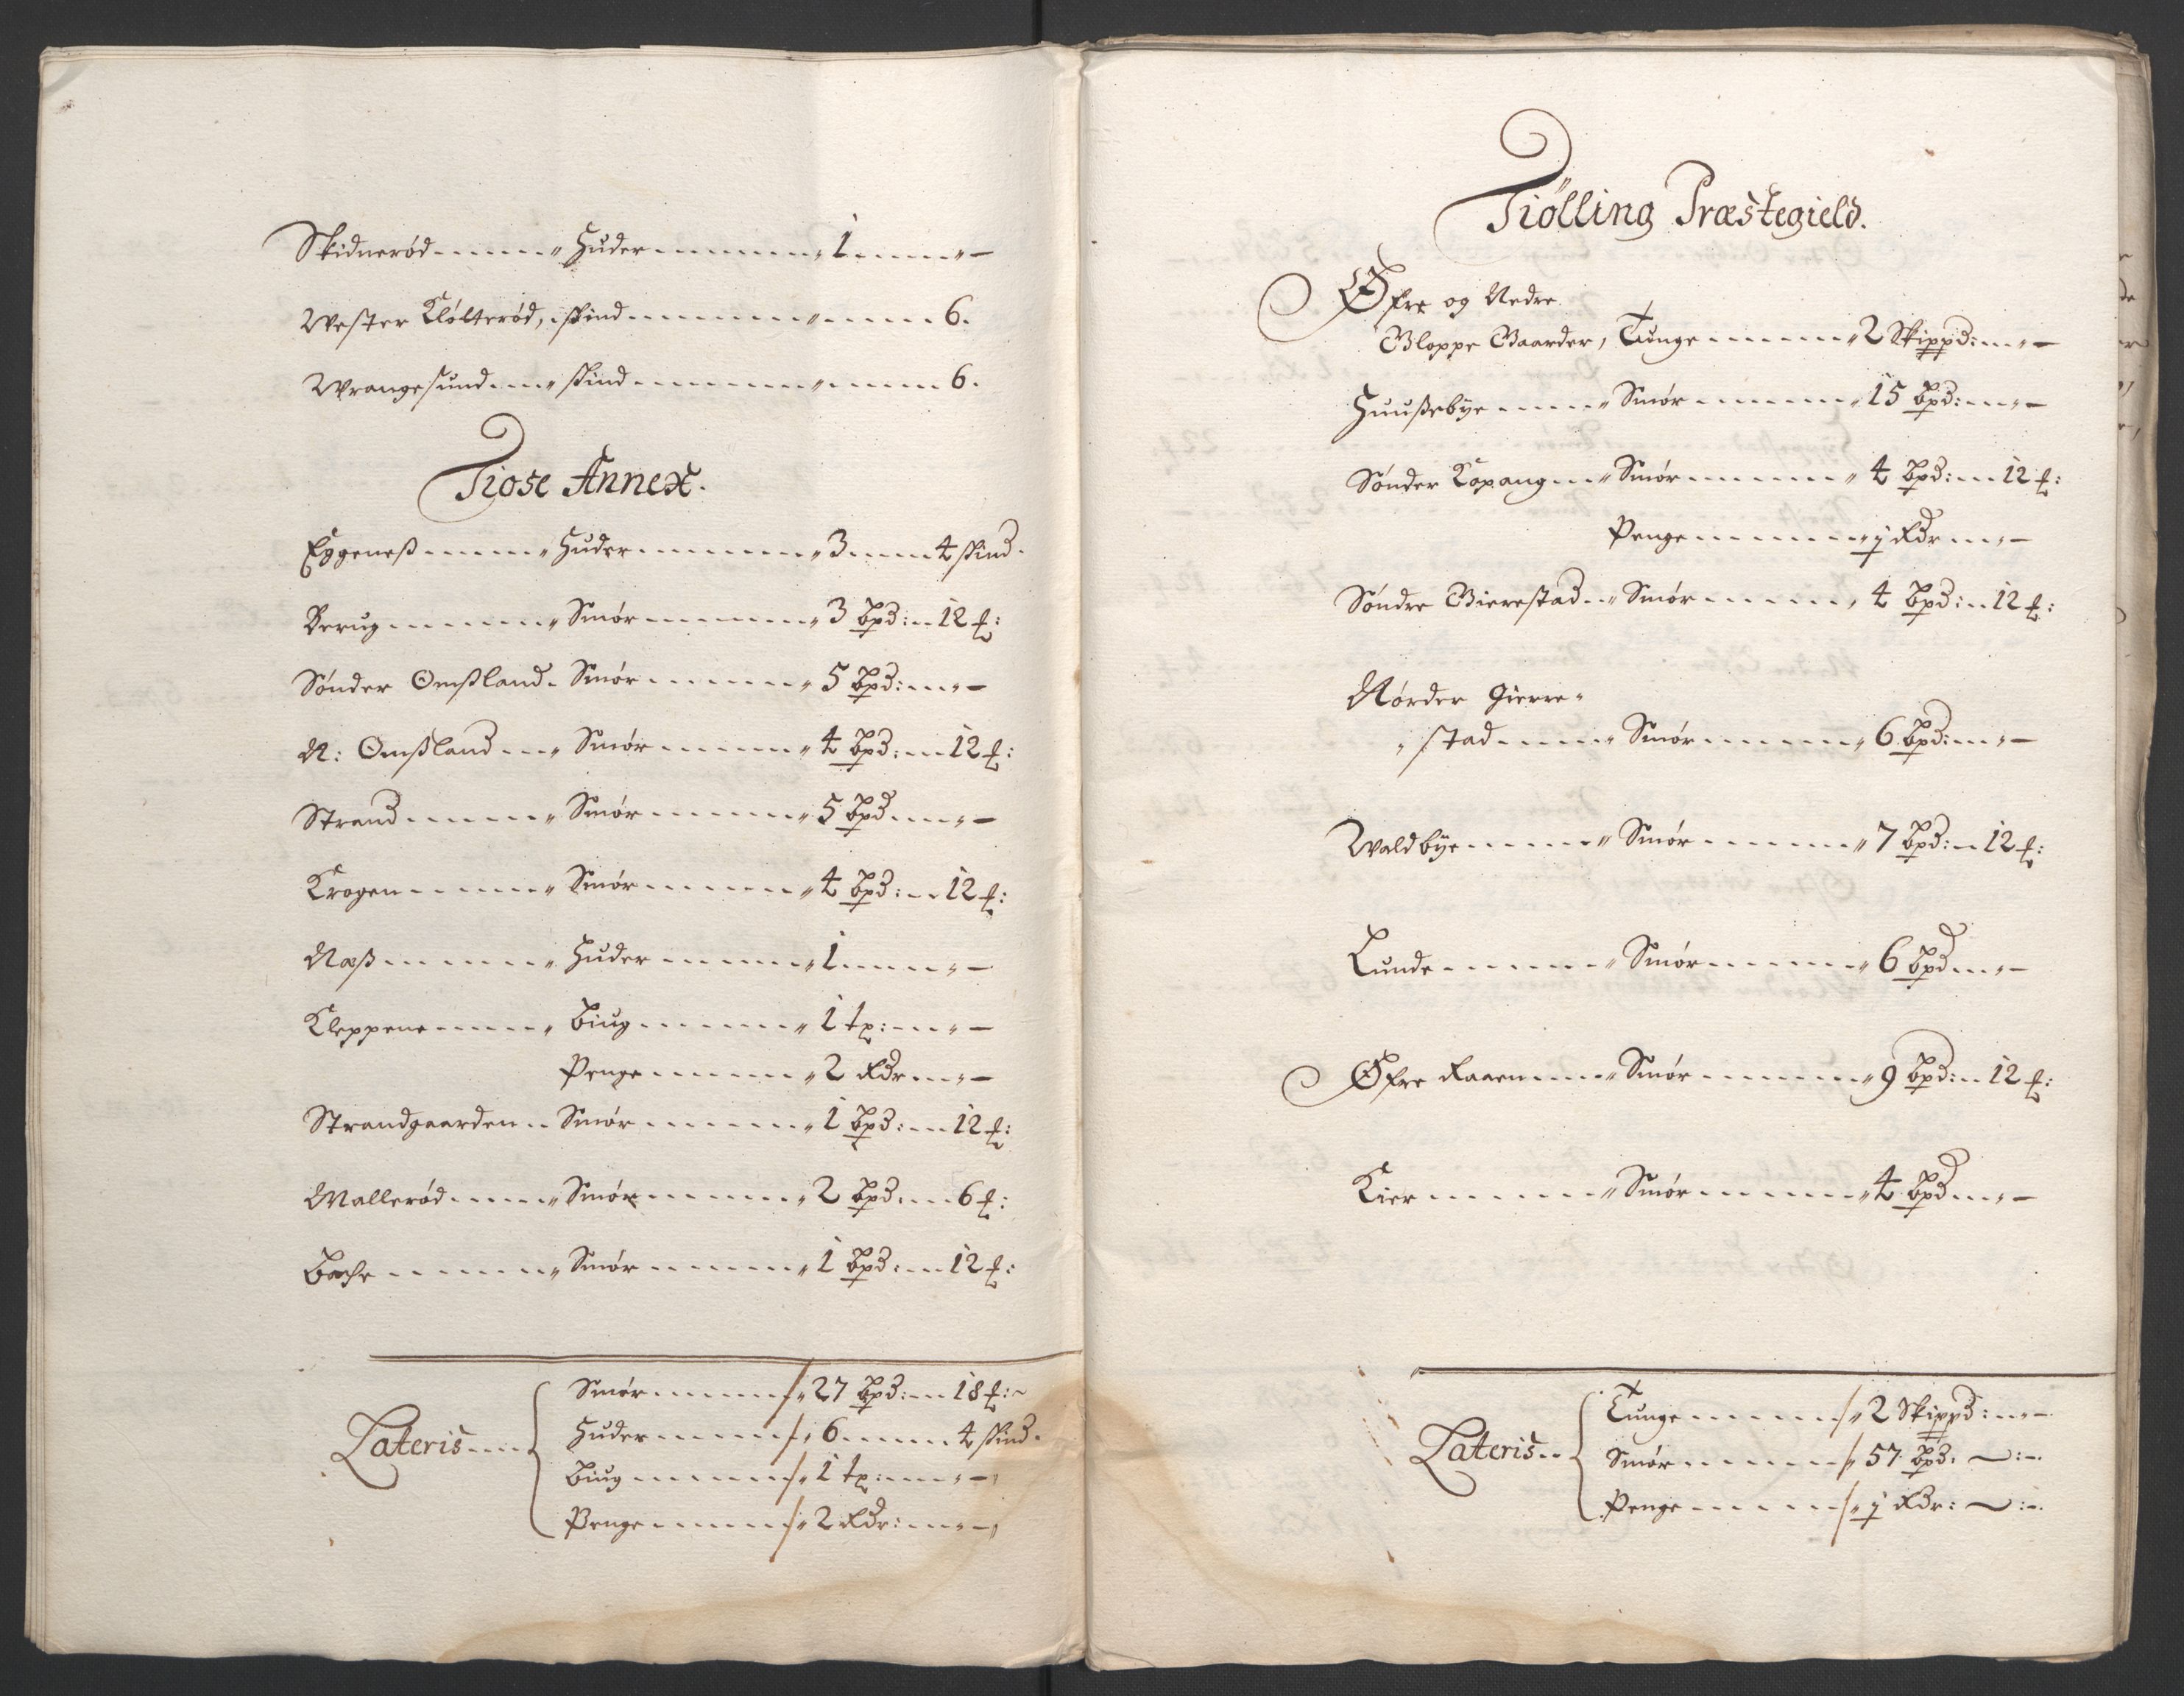 Skidnerød - - - - - - „ Huder - - - - - - - „ 1 - - - - - „ -
Wester KløLterød, - skind - - - - - - - - „ - - - - - 6.
Wrangesund - - - „ skind - - - - - - - - „ - - - - - 6.
Tiose Annex.
Eggeneß - - - - - „ Huder - - - - - - - „ 3 - - - - 4 skind.
Berug - - - - - - - „ Smør - - - - - - - „ 3 bpd: - - 12 ℔:
Sønder Omßland - Smør - - - - - - „ 5 bpd: - - „ -
N: Omßland - - - „ Smør - - - - - - „ 4 bpd: - - 12 ℔:
Strand - - - - - - „ Smør - - - - - - „ 5 bpd - - - „ -
Krogen - - - - - - „ Smør - - - - - - „ 4 bpd: - - 12 ℔:
Næß - - - - - - - „ Huder - - - - - - „ 1 - - - - - „ -
Kleppene - - - - - „ Biug - - - - - - „ 1 tø: - - - „ -
Penge - - - - - - „ 2 Rdr - - „ -
Strandgaarden - - Smør - - - - - - „ 1 bpd: - - 12 ℔:
Mallerød - - - - - „ Smør - - - - - - „ 2 bpd: - - 6 ℔:
Bache - - - - - - - „ Smør - - - - - - „ 1 bpd: - - 12 ℔:
Lateris - - -
Smør - - - - - - / „ 27 bpd: - - 18 ℔:
Huder - - - - - - / „ 6 - - - - - 4 skind.
Biug - - - - - - - / „ 1 tø: - - - „ -
Penge - - - - - - / „ 2 Rdr: - - - „ -
Tiølling Præstegield.
Øfre og Nedre
Gloppe Gaarder, Tunge - - - - - - „ 2 Skippd: - - „ -
Huußebye - - - - - „ Smør - - - - - - „ 15 bpd: - - „ -
Sønder Kopang - - „ Smør - - - - - - „ 4 bpd: - - 12 ℔:
Penge - - - - - - - „ ½ Rdr - - „ -
Søndre Gierestad - „ Smør - - - - - „ 4 bpd: - 12 ℔:
Nørder Gierre-
„ stad - - - - - „ Smør - - - - - - „ 6 bpd: - - „ -
Waldbye - - - - - „ Smør - - - - - - „ 7 bpd: - 12 ℔:
Lunde - - - - - - - „ Smør - - - - - - „ 6 bpd - - „ -
Øfre Raaen - - - - „ Smør - - - - - - „ 9 bpd: - 12 ℔:
Kier - - - - - - - - „ Smør - - - - - - „ 4 bpd - - „ -
Lateris - -
Tunge - - - - - - / „ 2 Skippd: - - „ -
Smør - - - - - - / „ 57 bpd. - : -
Penge - - - - - - / „ ½ Rdr: - : -